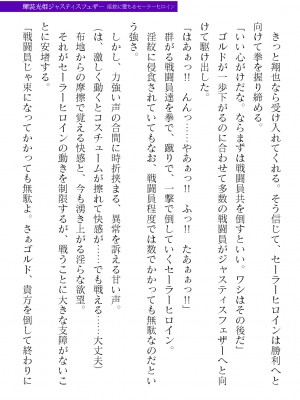 輝装光姫ジャスティスフェザー 淫紋に堕ちるセーラーヒロイン
きっと翔也なら受け入れてくれる。そう信じて、セーラーヒロインは勝利へと
向けて拳を握り締める。
「いい心がけだな。ならまずは戦闘員共を倒すといい。ワシはその後だ」
ゴルドが一歩下がるのに合わせて多数の戦闘員がジャスティスフェザーへと向
けて駆け出した。
「はあぁっ!! んんっ……やあぁっ!! ふっ!! たあぁぁっ!!」
群がる戦闘員達を拳で、蹴りで、一撃で倒していくセーラーヒロイン。
淫紋に侵食されていてもなお、戦闘員程度では数でかかっても無駄なのだとい
う強さ。
しかし、力強い声の合間に時折挟まる、異常を訴える甘い声。
（は、激しく動くとコスチュームが擦れて快感が……でも戦える……大丈夫）
布地からの摩擦で覚える快感と、今も湧き上がる淫らな欲望。
それがセーラーヒロインの動きを制限するが、戦うことに大きな支障がないこ
とに安堵する。
「戦闘員じゃ束になってかかっても無駄よ。さぁゴルド、貴方を倒して終わりに